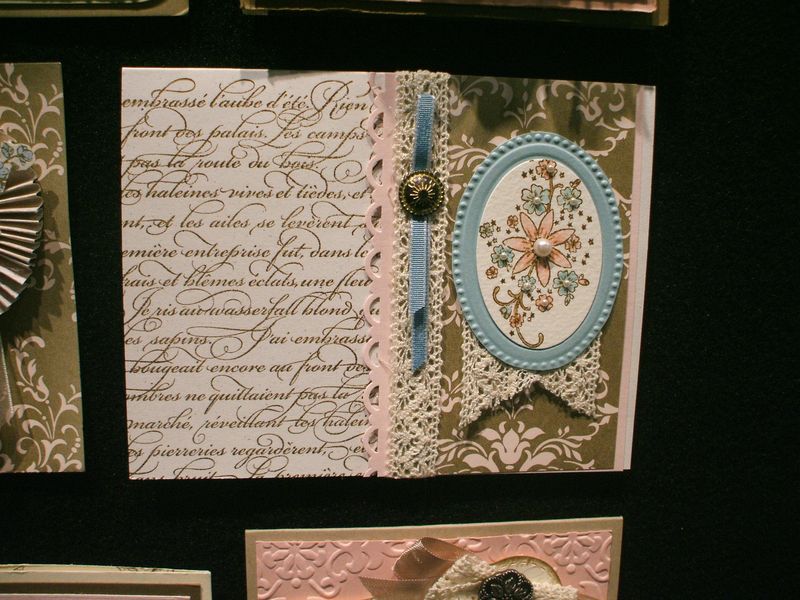 embrassé l'aube d'été. Rien
front des palais. Les camps
pas la route du bois.
les haleines vives et tièdes, et
nt, et les ailes se levèrent
emière entreprise fut, dans le
frais et blêmes éclats, une fleu
Je ris au wasserfall blond
es sapins. J'ai embrass
bougeait encore au front de
ombres ne quittaient pas la
marché, réveillant les halein
es pierreries regardèrent, e
sans bruit. La première